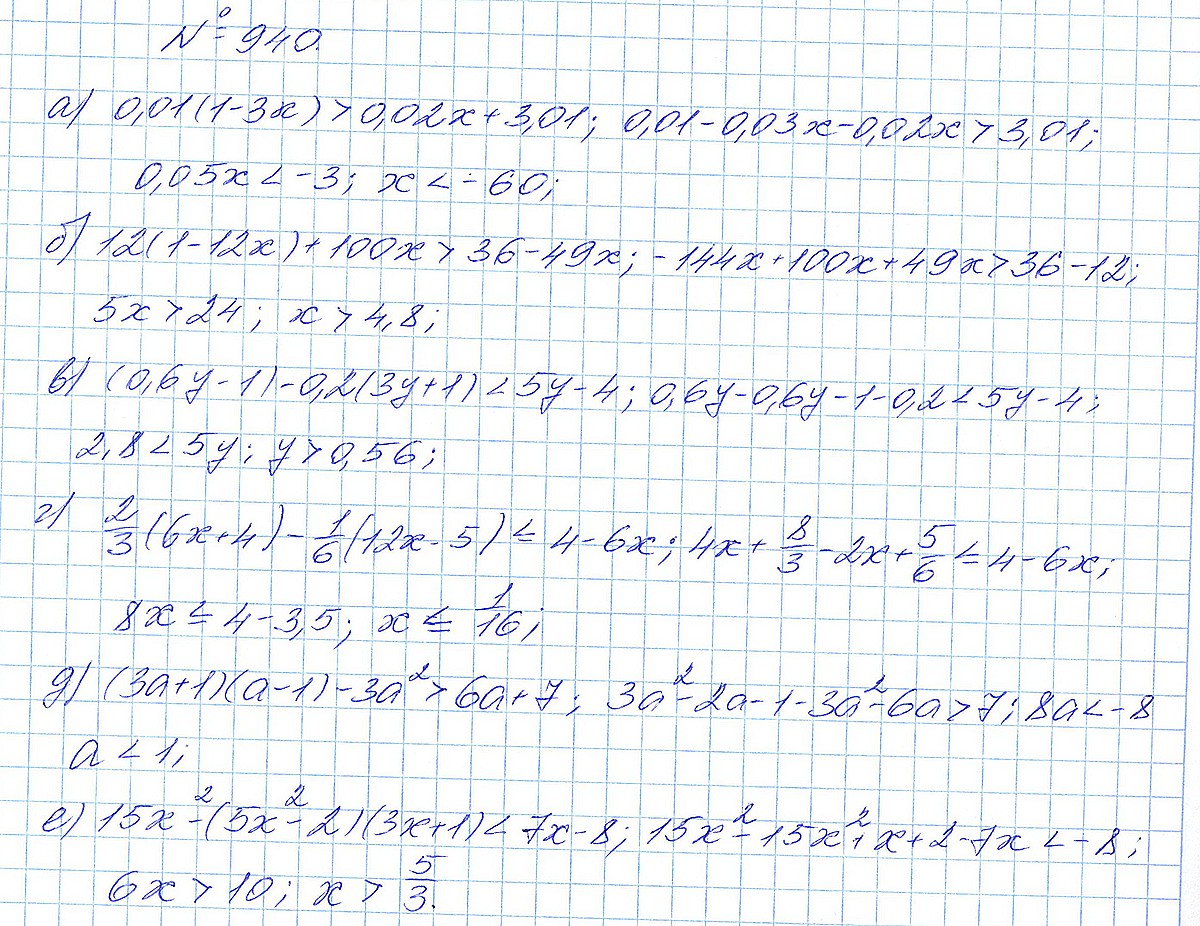 № 940.
а) 0,01(1-3x) > 0,02x + 3,01; 0,01 - 0,03x - 0,02x > 3,01;
0,05x < -3; x < -60;
б) 12(1-12x) + 100x > 36 - 49x; -144x + 100x + 49x > 36 - 12;
5x > 24; x > 4,8;
в) (0,6y - 1) - 0,2(3y + 1) < 5y - 4; 0,6y - 0,6y - 1 - 0,2 < 5y - 4;
2,8 < 5y; y > 0,56;
г) 2/3(6x + 4) - 1/6(12x - 5) ≤ 4 - 6x; 4x + 8/3 - 2x + 5/6 ≤ 4 - 6x;
8x ≤ 4 - 3,5; x ≤ 1/16;
д) (3a + 1)(a - 1) - 3a² > 6a + 7; 3a² - 2a - 1 - 3a² - 6a > 7; 8a < -8
a < 1;
е) 15x² - (5x² - 2)(3x + 1) < 7x - 8; 15x² - 15x² + x + 2 - 7x < -8;
6x > 10; x > 5/3.